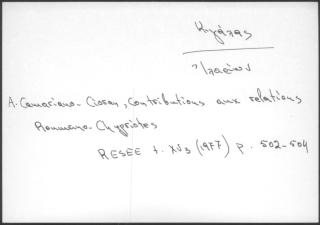 Κιγάλας
Ἱλαρίων
A. Camariano-Cioran, Contributions aux relations
Roumano-Chypriotes
RESEE t. XV3 (1977) p. 502-504